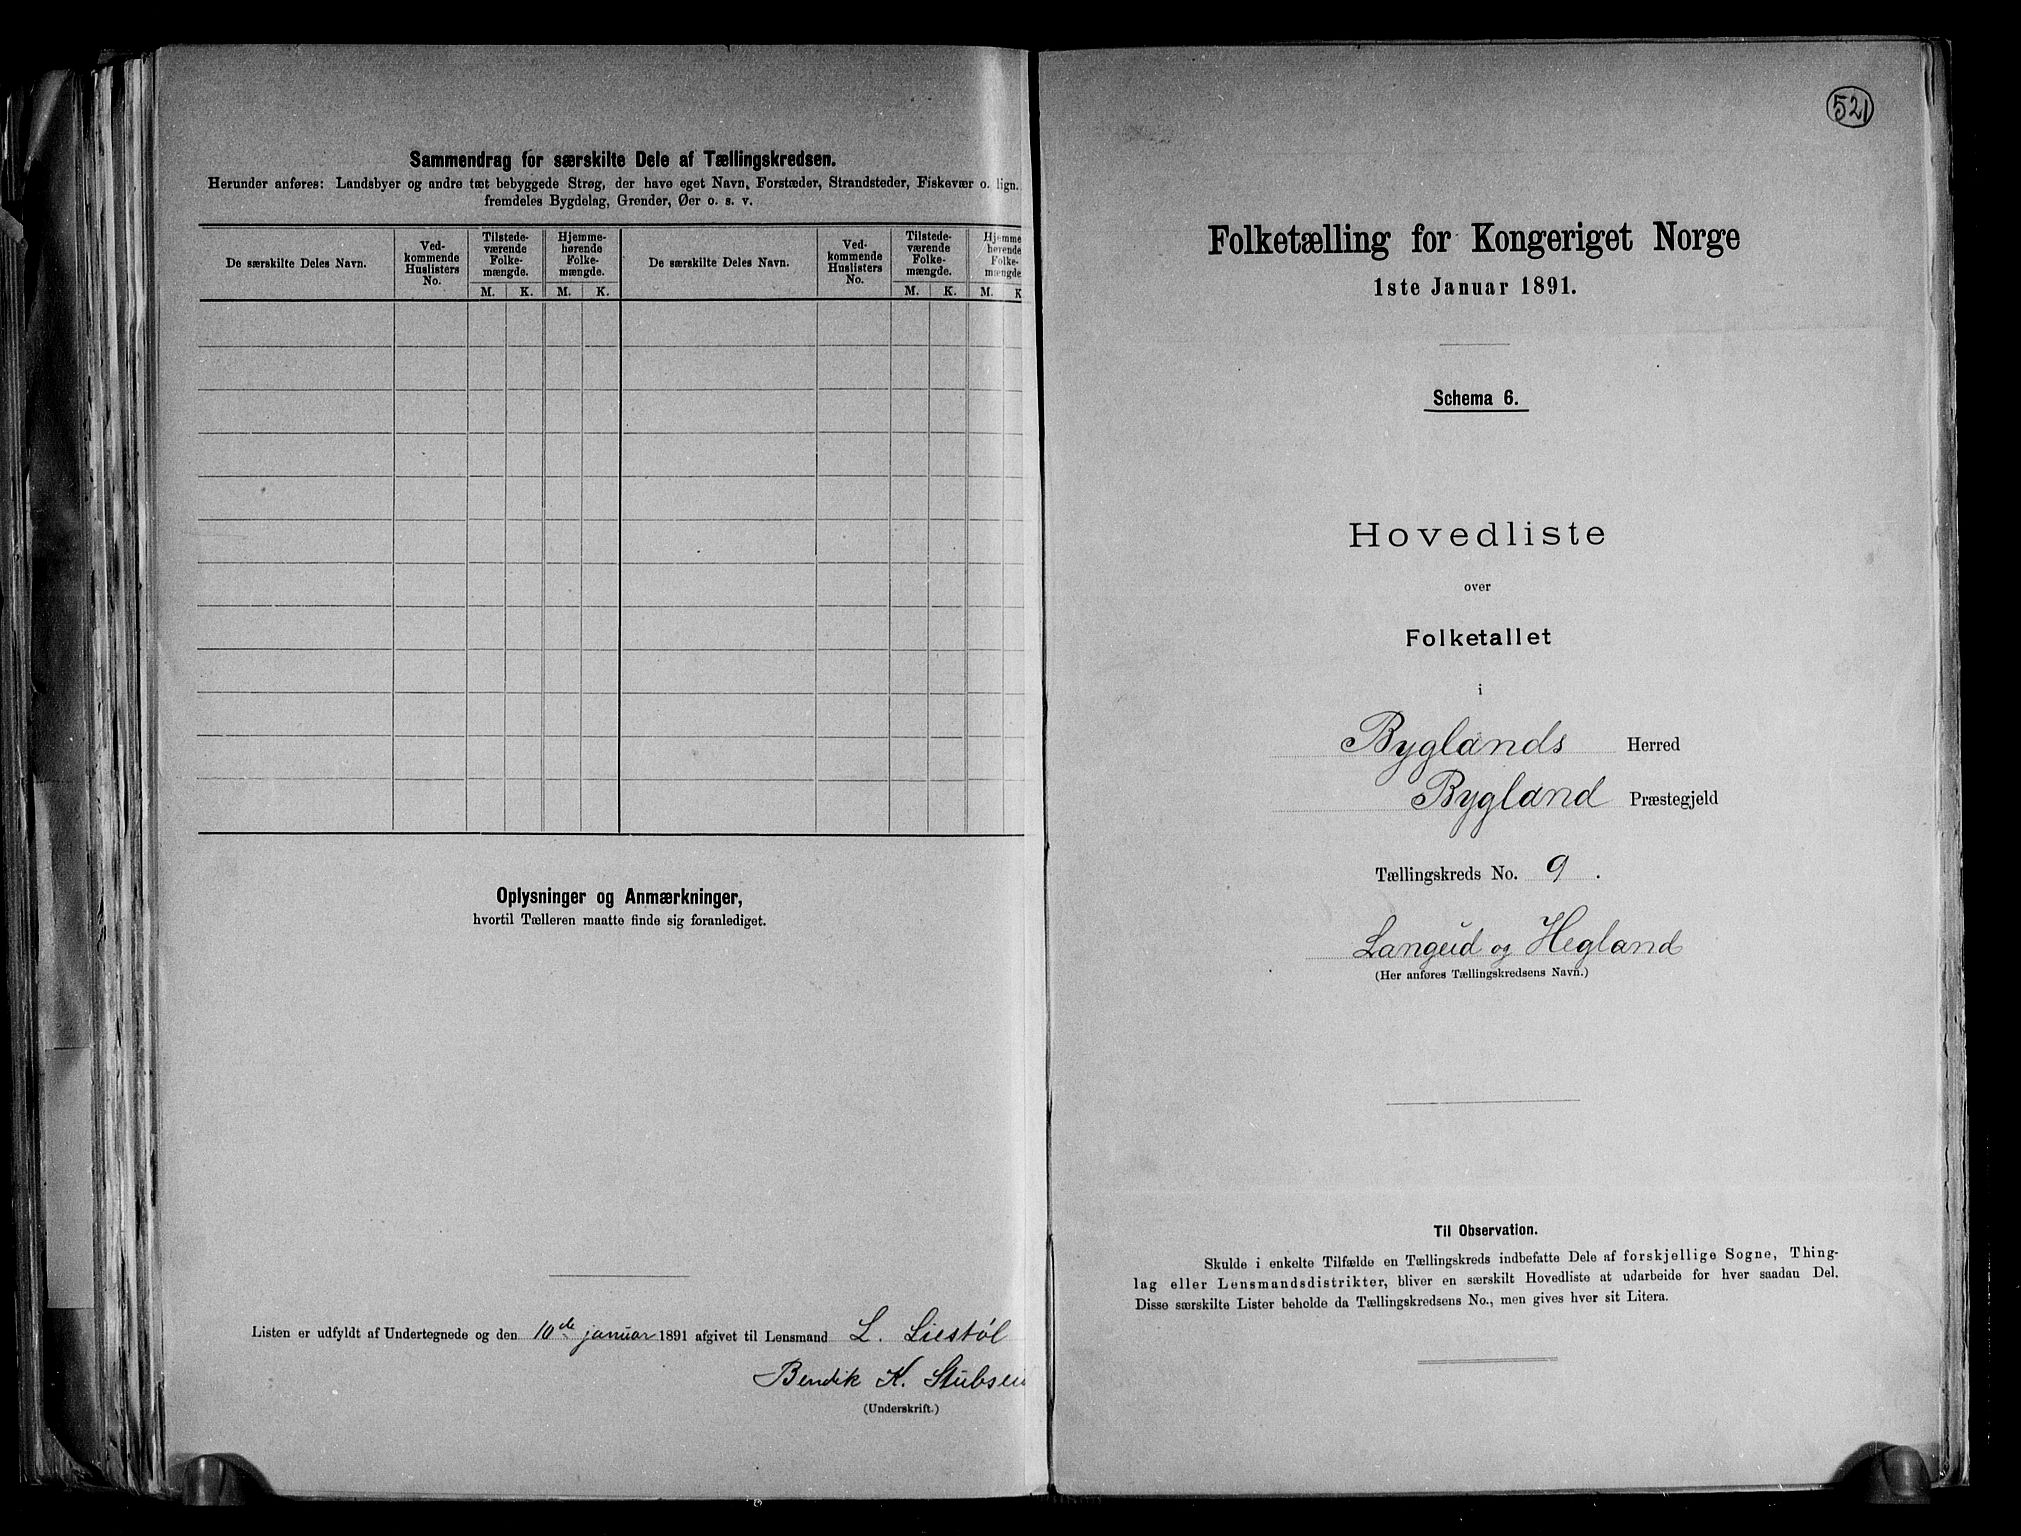 Sammendrag for særskilte Dele af Tællingskredsen.
Herunder anføres: Landsbyer og andre tæt bebyggede Strøg, der have eget Navn, Forstæder, Strandsteder, Fiskevær o. lign.
fremdeles Bygdelag, Grender, Øer o. s. v.
De særskilte Deles Navn.
Ved-
kommende
Huslisters
No.
Tilstede-
værende
Folke-
mængde.
M. K.
Hjemme-
hørende
Folke-
mængde.
M. K.
De særskilte Deles Navn.
Ved-
kommende
Huslisters
No.
Tilstede-
værende
Folke-
mængde.
M. K.
Hjemme
hørende
Folke-
mængde
M. K
Oplysninger og Anmærkninger,
hvortil Tælleren maatte finde sig foranlediget.
Listen er udfyldt af Undertegnede og den 10de januar 1891 afgivet til Lensmand L. Liestøl
Bendik K. Stubsen
(Underskrift.)
521
Folketælling for Kongeriget Norge
1ste Januar 1891.
Schema 6.
Hovedliste
over
Folketallet
i
Byglands Herred
Bygland Præstegjeld
Tællingskreds No. 9.
Langeid og Hegland
(Her anføres Tællingskredsens Navn.)
Til Observation.
Skulde i enkelte Tilfælde en Tællingskreds indbefatte Dele af forskjellige Sogne, Thing-
lag eller Lensmandsdistrikter, bliver en særskilt Hovedliste at udarbeide for hver saadan Del.
Disse særskilte Lister beholde da Tællingskredsens No., men gives hver sit Litera.